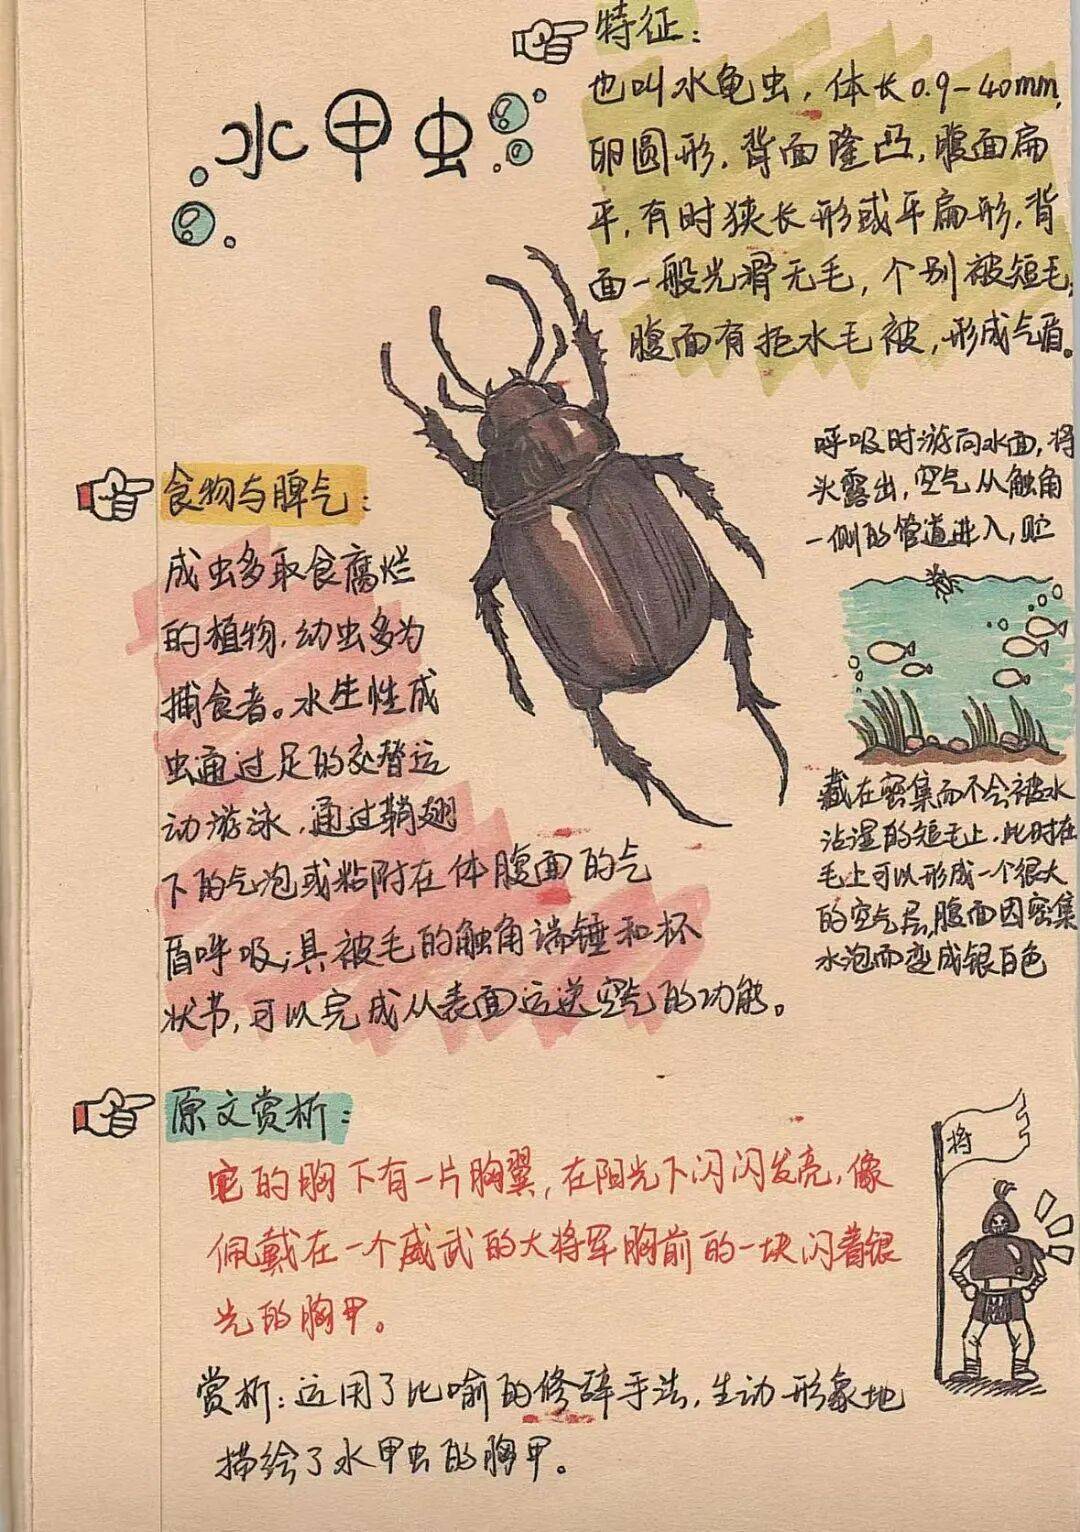 水甲虫
特征：
也叫水龟虫，体长0.9-40mm，
卵圆形，背面隆凸，腹面扁
平，有时狭长形或平扁形，背
面一般光滑无毛，个别被短毛；
腹面有拒水毛被，形成气盾。
呼吸时游向水面，将
头露出，空气从触角
一侧的管道进入，贮
藏在密集而不会被水
沾湿的短毛上，此时在
毛上可以形成一个很大
的空气层，腹面因密集
水泡而变成银白色
食物与脾气：
成虫多取食腐烂
的植物，幼虫多为
捕食者。水生性成
虫通过足的交替运
动游泳，通过鞘翅
下的气泡或粘附在体腹面的气
盾呼吸；具被毛的触角端锤和杯
状节，可以完成从表面运送空气的功能。
原文赏析：
它的胸下有一片胸翼，在阳光下闪闪发亮，像
佩戴在一个威武的大将军胸前的一块闪着银
光的胸甲。
赏析：运用了比喻的修辞手法，生动形象地
描绘了水甲虫的胸甲。
将